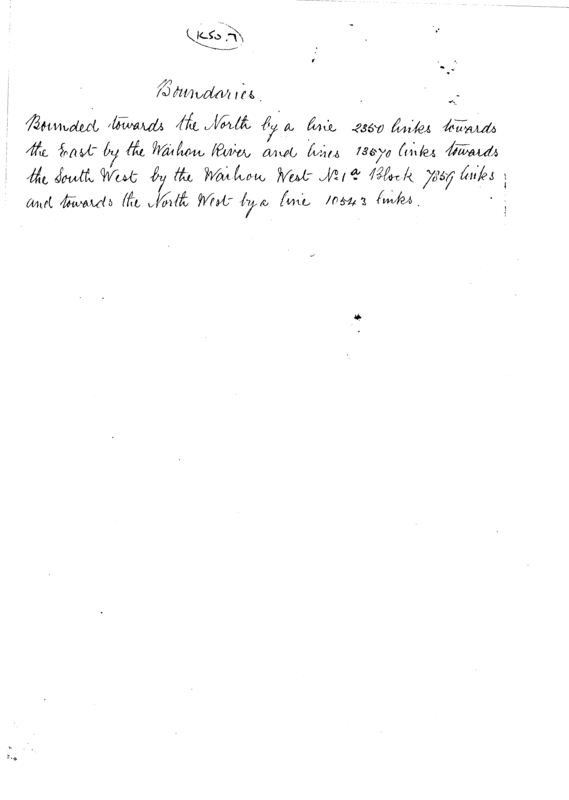 (K50.7)
Boundaries.
Bounded towards the North by a line 2350 links towards
the East by the Waihou River and lines 13570 links towards
the South West by the Waihou West No 1a Block 7859 links
and towards the North West by a line 10543 links.